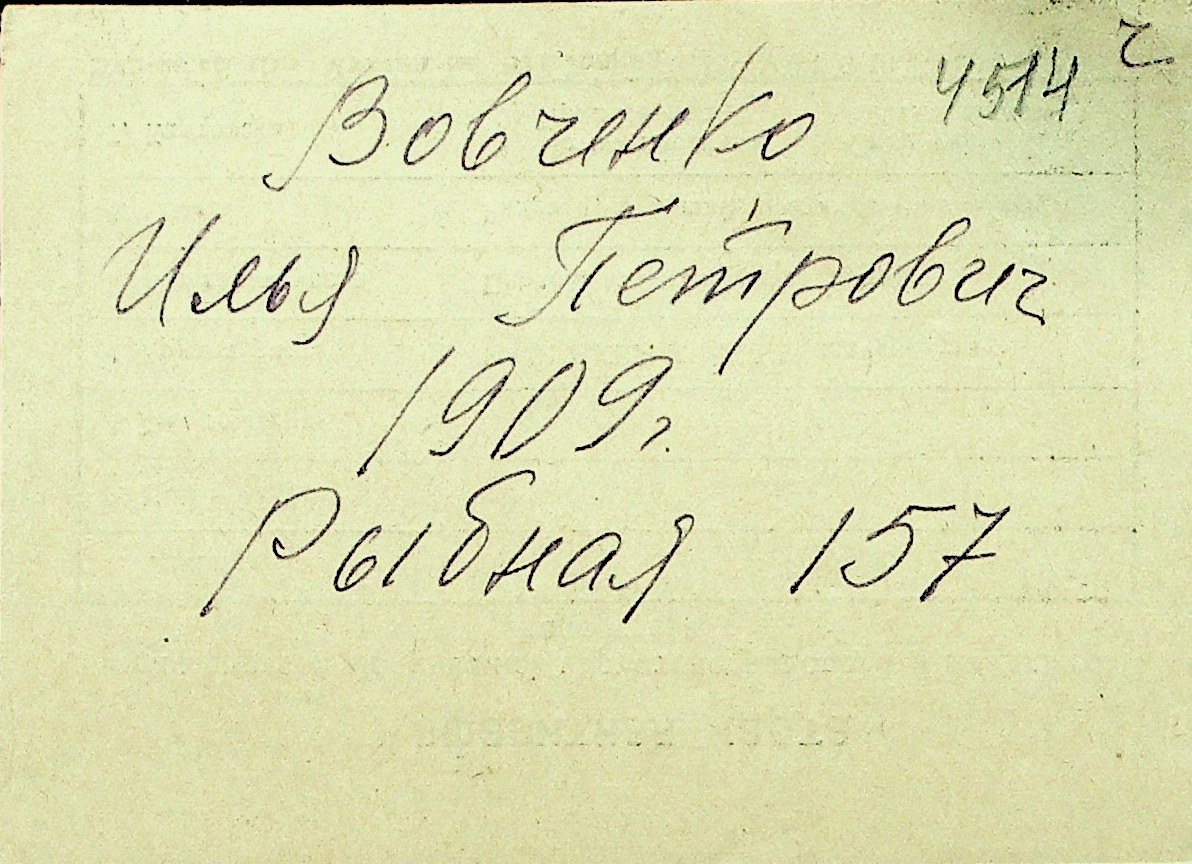 4514 ч
Вовченко
Илья Петрович
1909г.
Рыбная 157